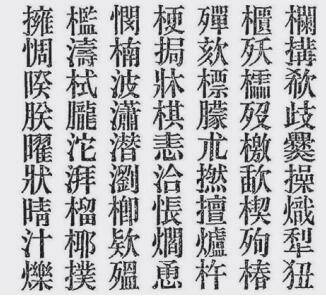 擁檻憫梗殫櫃欄
惆濤楠挶欬殀搆
睽栻波牀標檽欷
朕朧瀟棋朦歿歧
曜沱潛恚朮檄爨
狀湃瀏洽撚歃操
晴榴楖悵擅楔熾
汁椰欵爛爐殉犁
爍撲殟恿杵椿狃